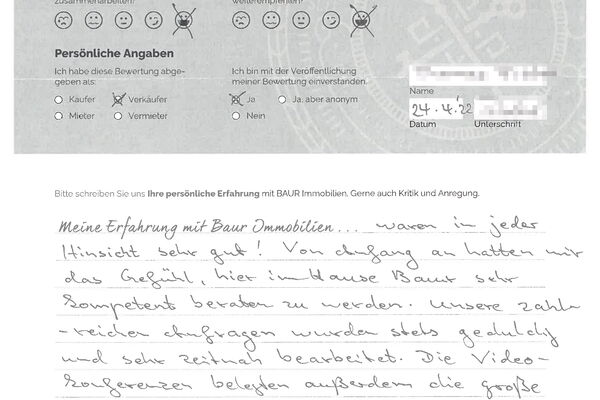 zusammenarbeiten?
weiterempfehlen?
Persönliche Angaben
Ich habe diese Bewertung abge-
geben als:
Käufer
Verkäufer
Mieter
Vermieter
Ich bin mit der Veröffentlichung
meiner Bewertung einverstanden.
Ja
Ja, aber anonym
Nein
Name
24.4.'22
Datum
Unterschrift
Bitte schreiben Sie uns Ihre persönliche Erfahrung mit BAUR Immobilien. Gerne auch Kritik und Anregung.
Meine Erfahrung mit Baur Immobilien... waren in jeder
Hinsicht sehr gut! Von Anfang an hatten wir
das Gefühl, hier im Hause Baur sehr
kompetent beraten zu werden. Unsere zahl-
-reichen Anfragen wurden stets geduldig
und sehr zeitnah bearbeitet. Die Video-
konferenzen belegten außerdem die große